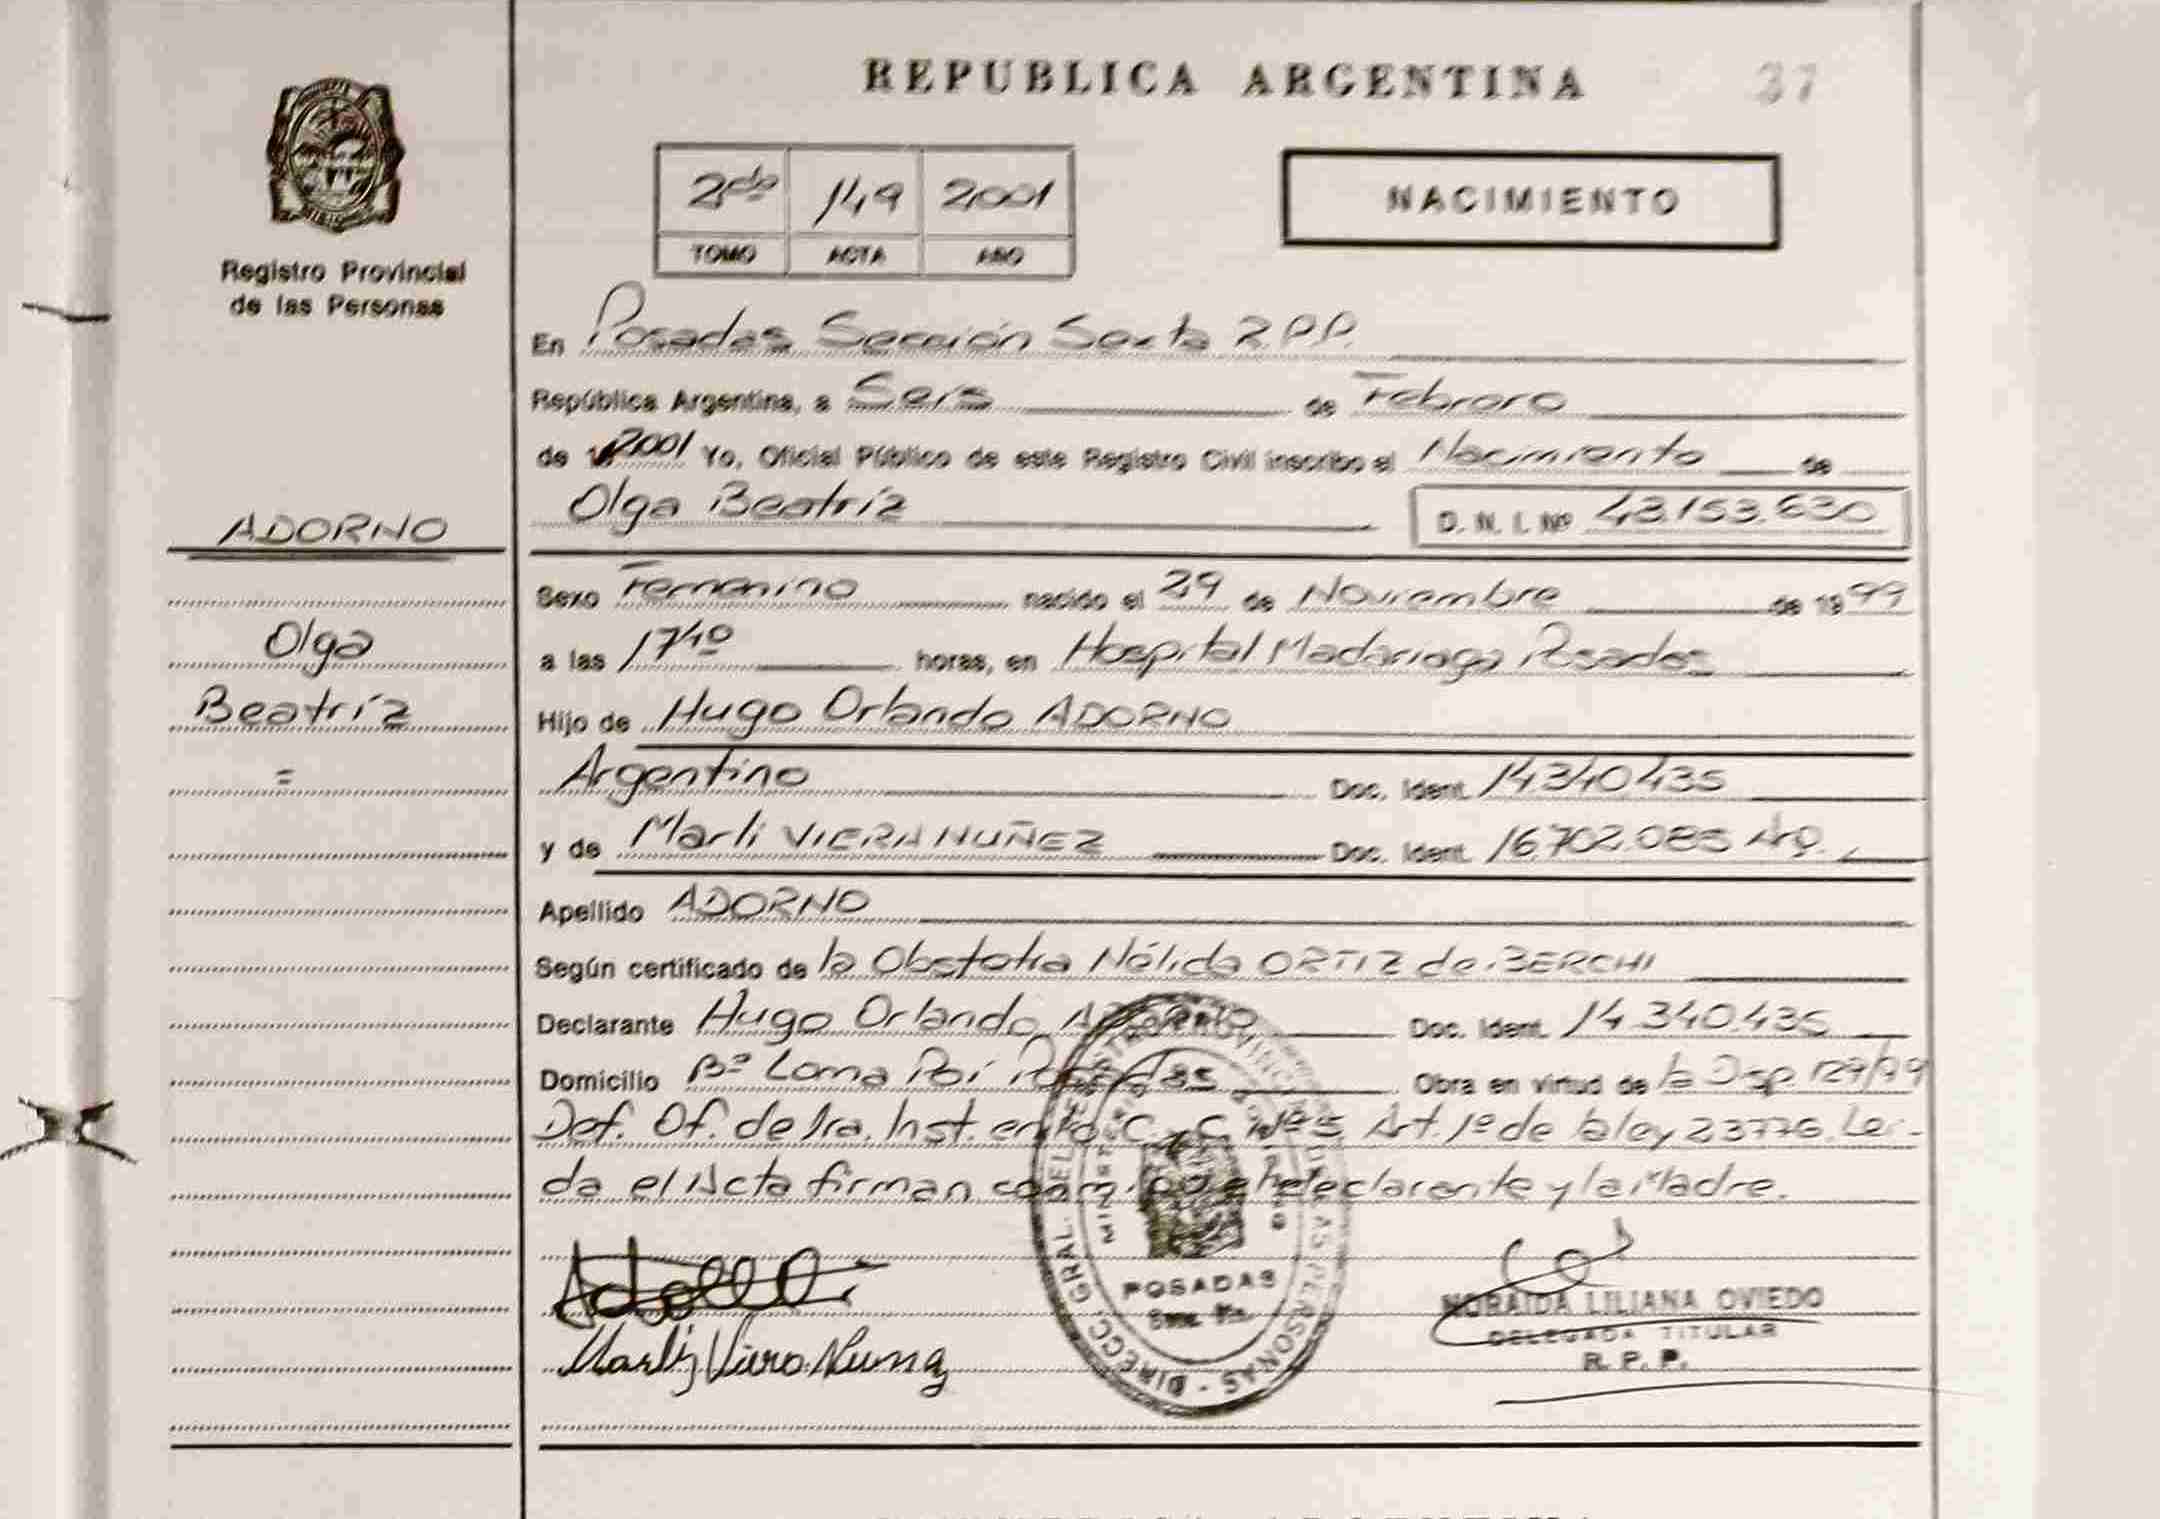 REPUBLICA ARGENTINA 37
2do 149 2001
TOMO ACTA AÑO
NACIMIENTO
Registro Provincial
de las Personas
En Posadas Sección Sexta R.P.P.
República Argentina, a Seis de Febrero
de 2001 Yo, Oficial Público de este Registro Civil inscribo el Nacimiento de
Olga Beatríz D. N. I. Nº 43.153.630
ADORNO
Olga
Beatríz
=
Sexo Femenino nacido el 29 de Noviembre de 1999
a las 1740 horas, en Hospital Madariaga Posadas
Hijo de Hugo Orlando ADORNO
Argentino Doc. Ident. 14340435
y de Marli VIERA NUÑEZ Doc. Ident. 16.702.085 Arg.
Apellido ADORNO
Según certificado de la Obstetra Nélida ORTIZ de BERCHI
Declarante Hugo Orlando ADORNO Doc. Ident. 14.340.435
Domicilio Bº Loma Poí Posadas Obra en virtud de la Disp. 129/99
Def. Of. de 1ra. Inst. en lo C. y C. Nº5 Art. 1º de la ley 23776. Leí-
da el Acta firman conmigo el declarante y la Madre.
Marli Viera Nuñez
DIRECC. GRAL. DEL REGISTRO PROVINCIAL DE LAS PERSONAS
POSADAS
NORAIDA LILIANA OVIEDO
DELEGADA TITULAR
R. P. P.